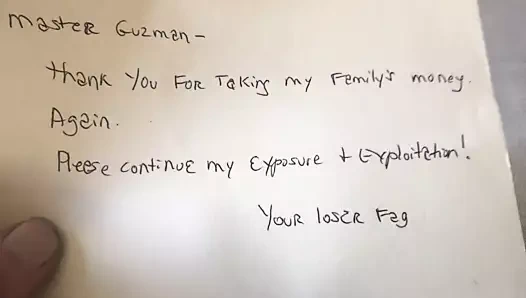 Master Guzman-
Thank You For Taking my Femily's money.
Again.
Please continue my Exposure + Exploitation!
Your loser Fag